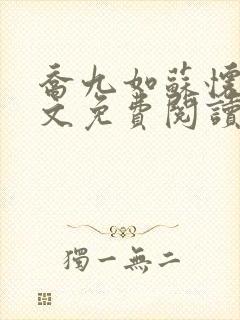 喬九如蘇懷
文免費閱讀
獨一無二